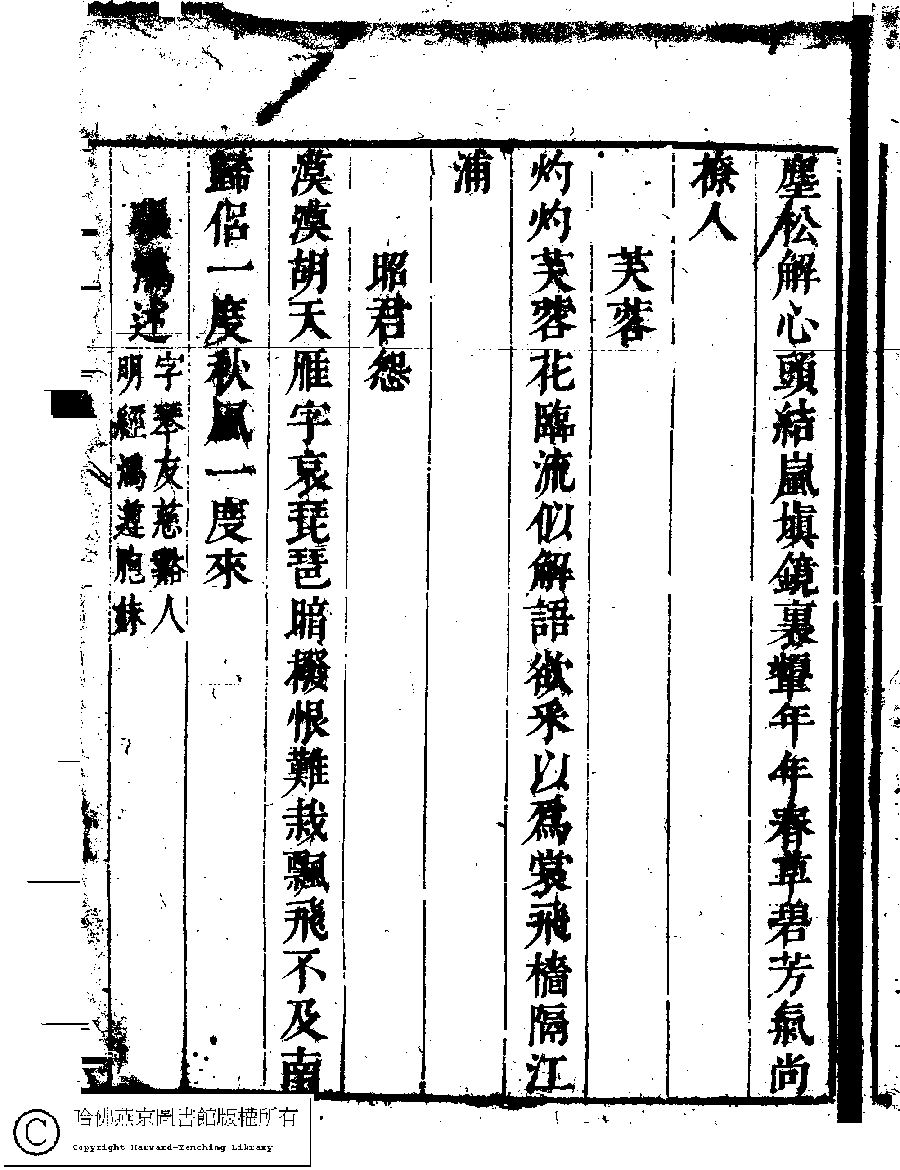 塵松解心頭結嵐塡鏡裏顰年年春草碧芳氣尚
撩人
芙蓉
灼灼芙蓉花臨流似解語欲采以爲裳飛檣隔江
浦
昭君怨
漠漠胡天雁字哀琵琶暗撥恨難裁飄飛不及南
歸侶一度秋風一度來
鴻逑
字琴友慈谿人
明經鴻遵胞妹
哈佛燕京圖書館版權所有
Copyright Harvard-Yenching Library